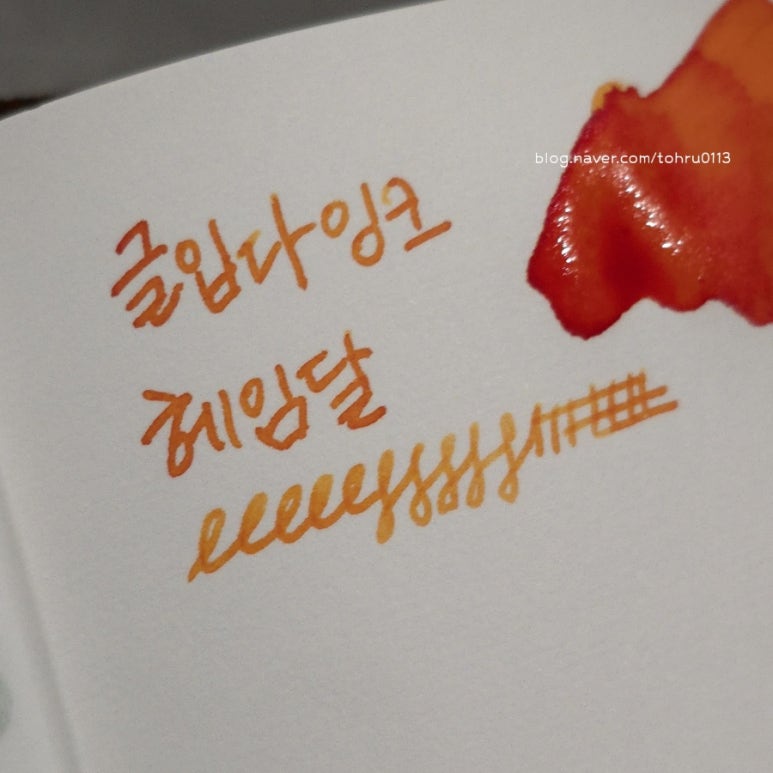 blog.naver.com/tohru0113
글입다 잉크
헤임달